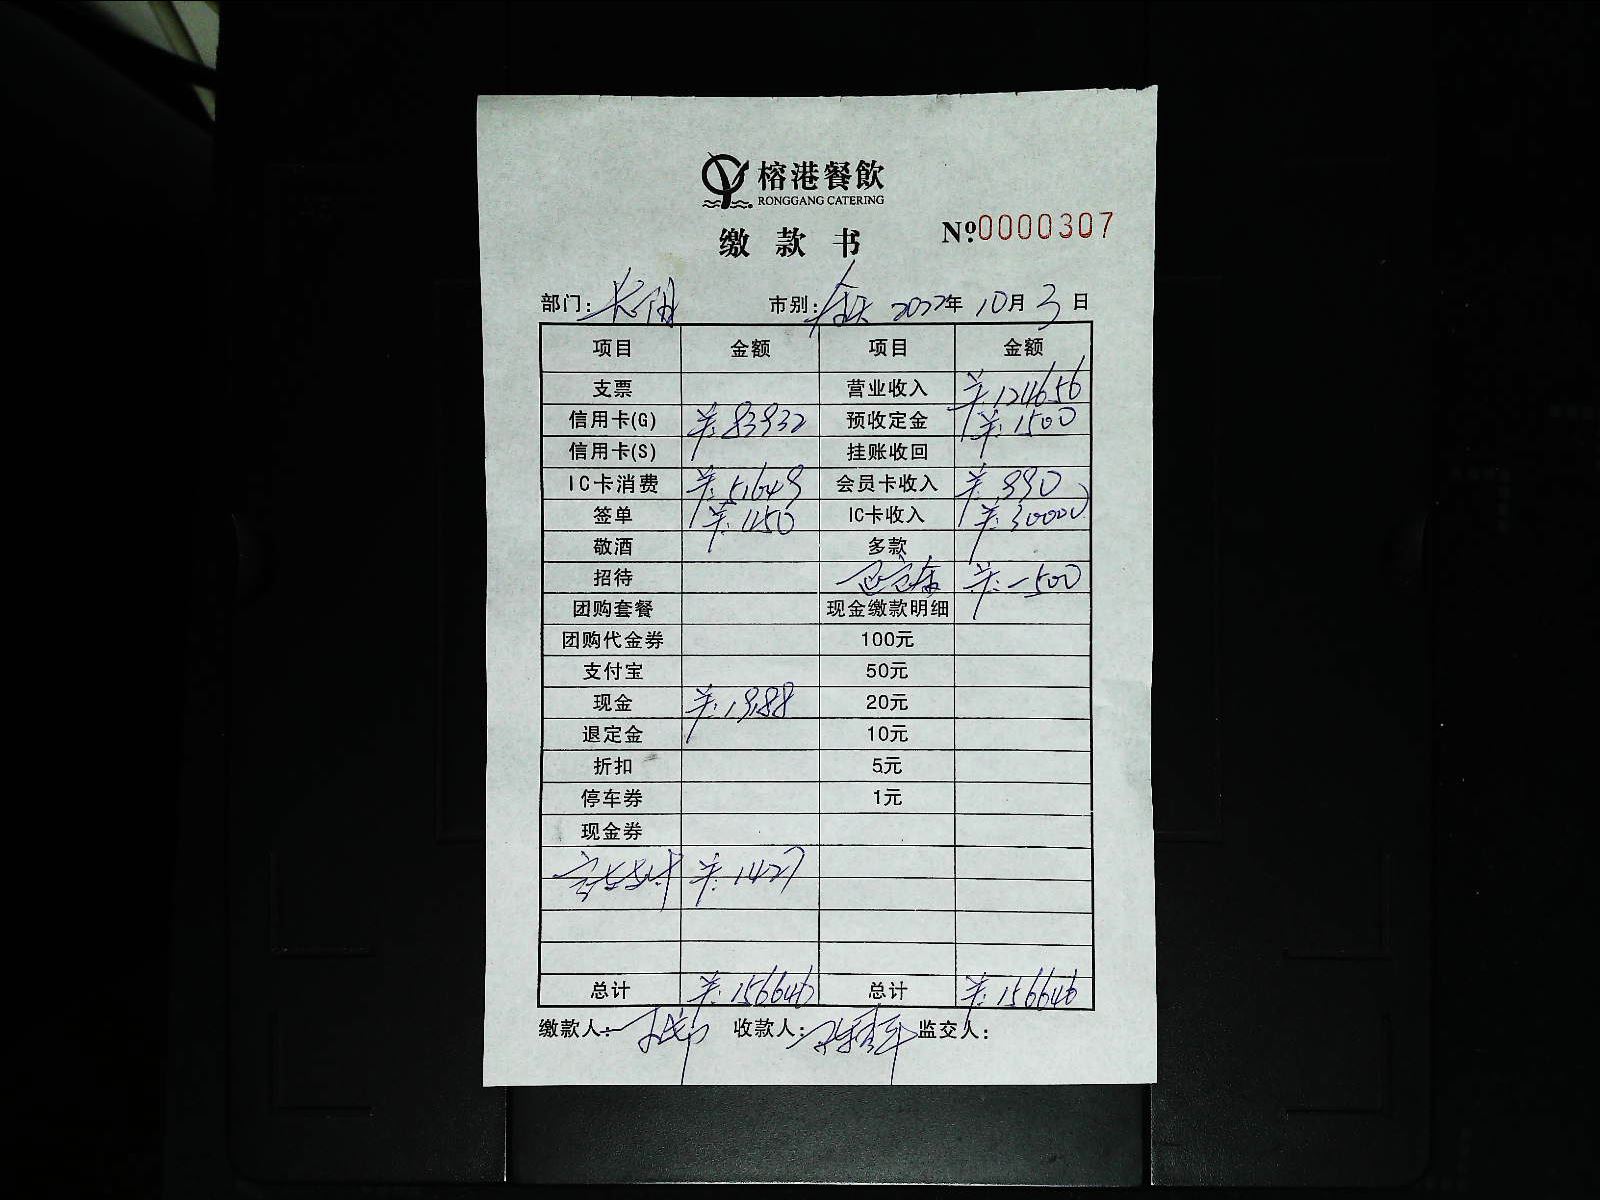 榕港餐飲
RONGGANG CATERING
缴款书
№0000307
部门: 市别:全天 2022年10月3日
项目 金额 项目 金额
支票 营业收入 ¥:124656
信用卡(G) ¥:83932 预收定金 ¥:1500
信用卡(S) 挂账收回
IC卡消费 ¥:51649 会员卡收入 ¥:990
签单 ¥:1150 IC卡收入 ¥:30000
敬酒 多款
招待 退定金 ¥:-500
团购套餐 现金缴款明细
团购代金券 100元
支付宝 50元
现金 ¥:18488 20元
退定金 10元
折扣 5元
停车券 1元
现金券
¥:1427
总计 ¥:156646 总计 ¥:156646
缴款人: 收款人: 监交人: